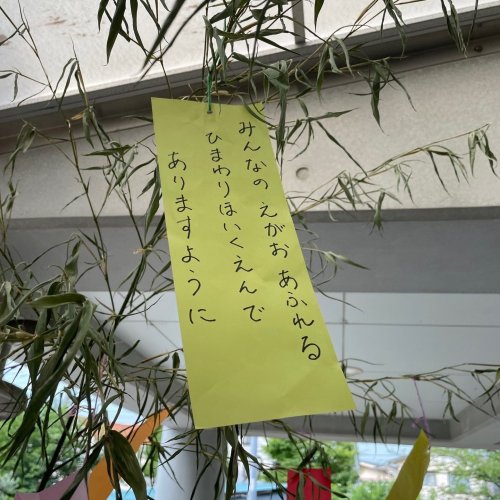 みんなの えがお あふれる
ひまわりほいくえんで
ありますように